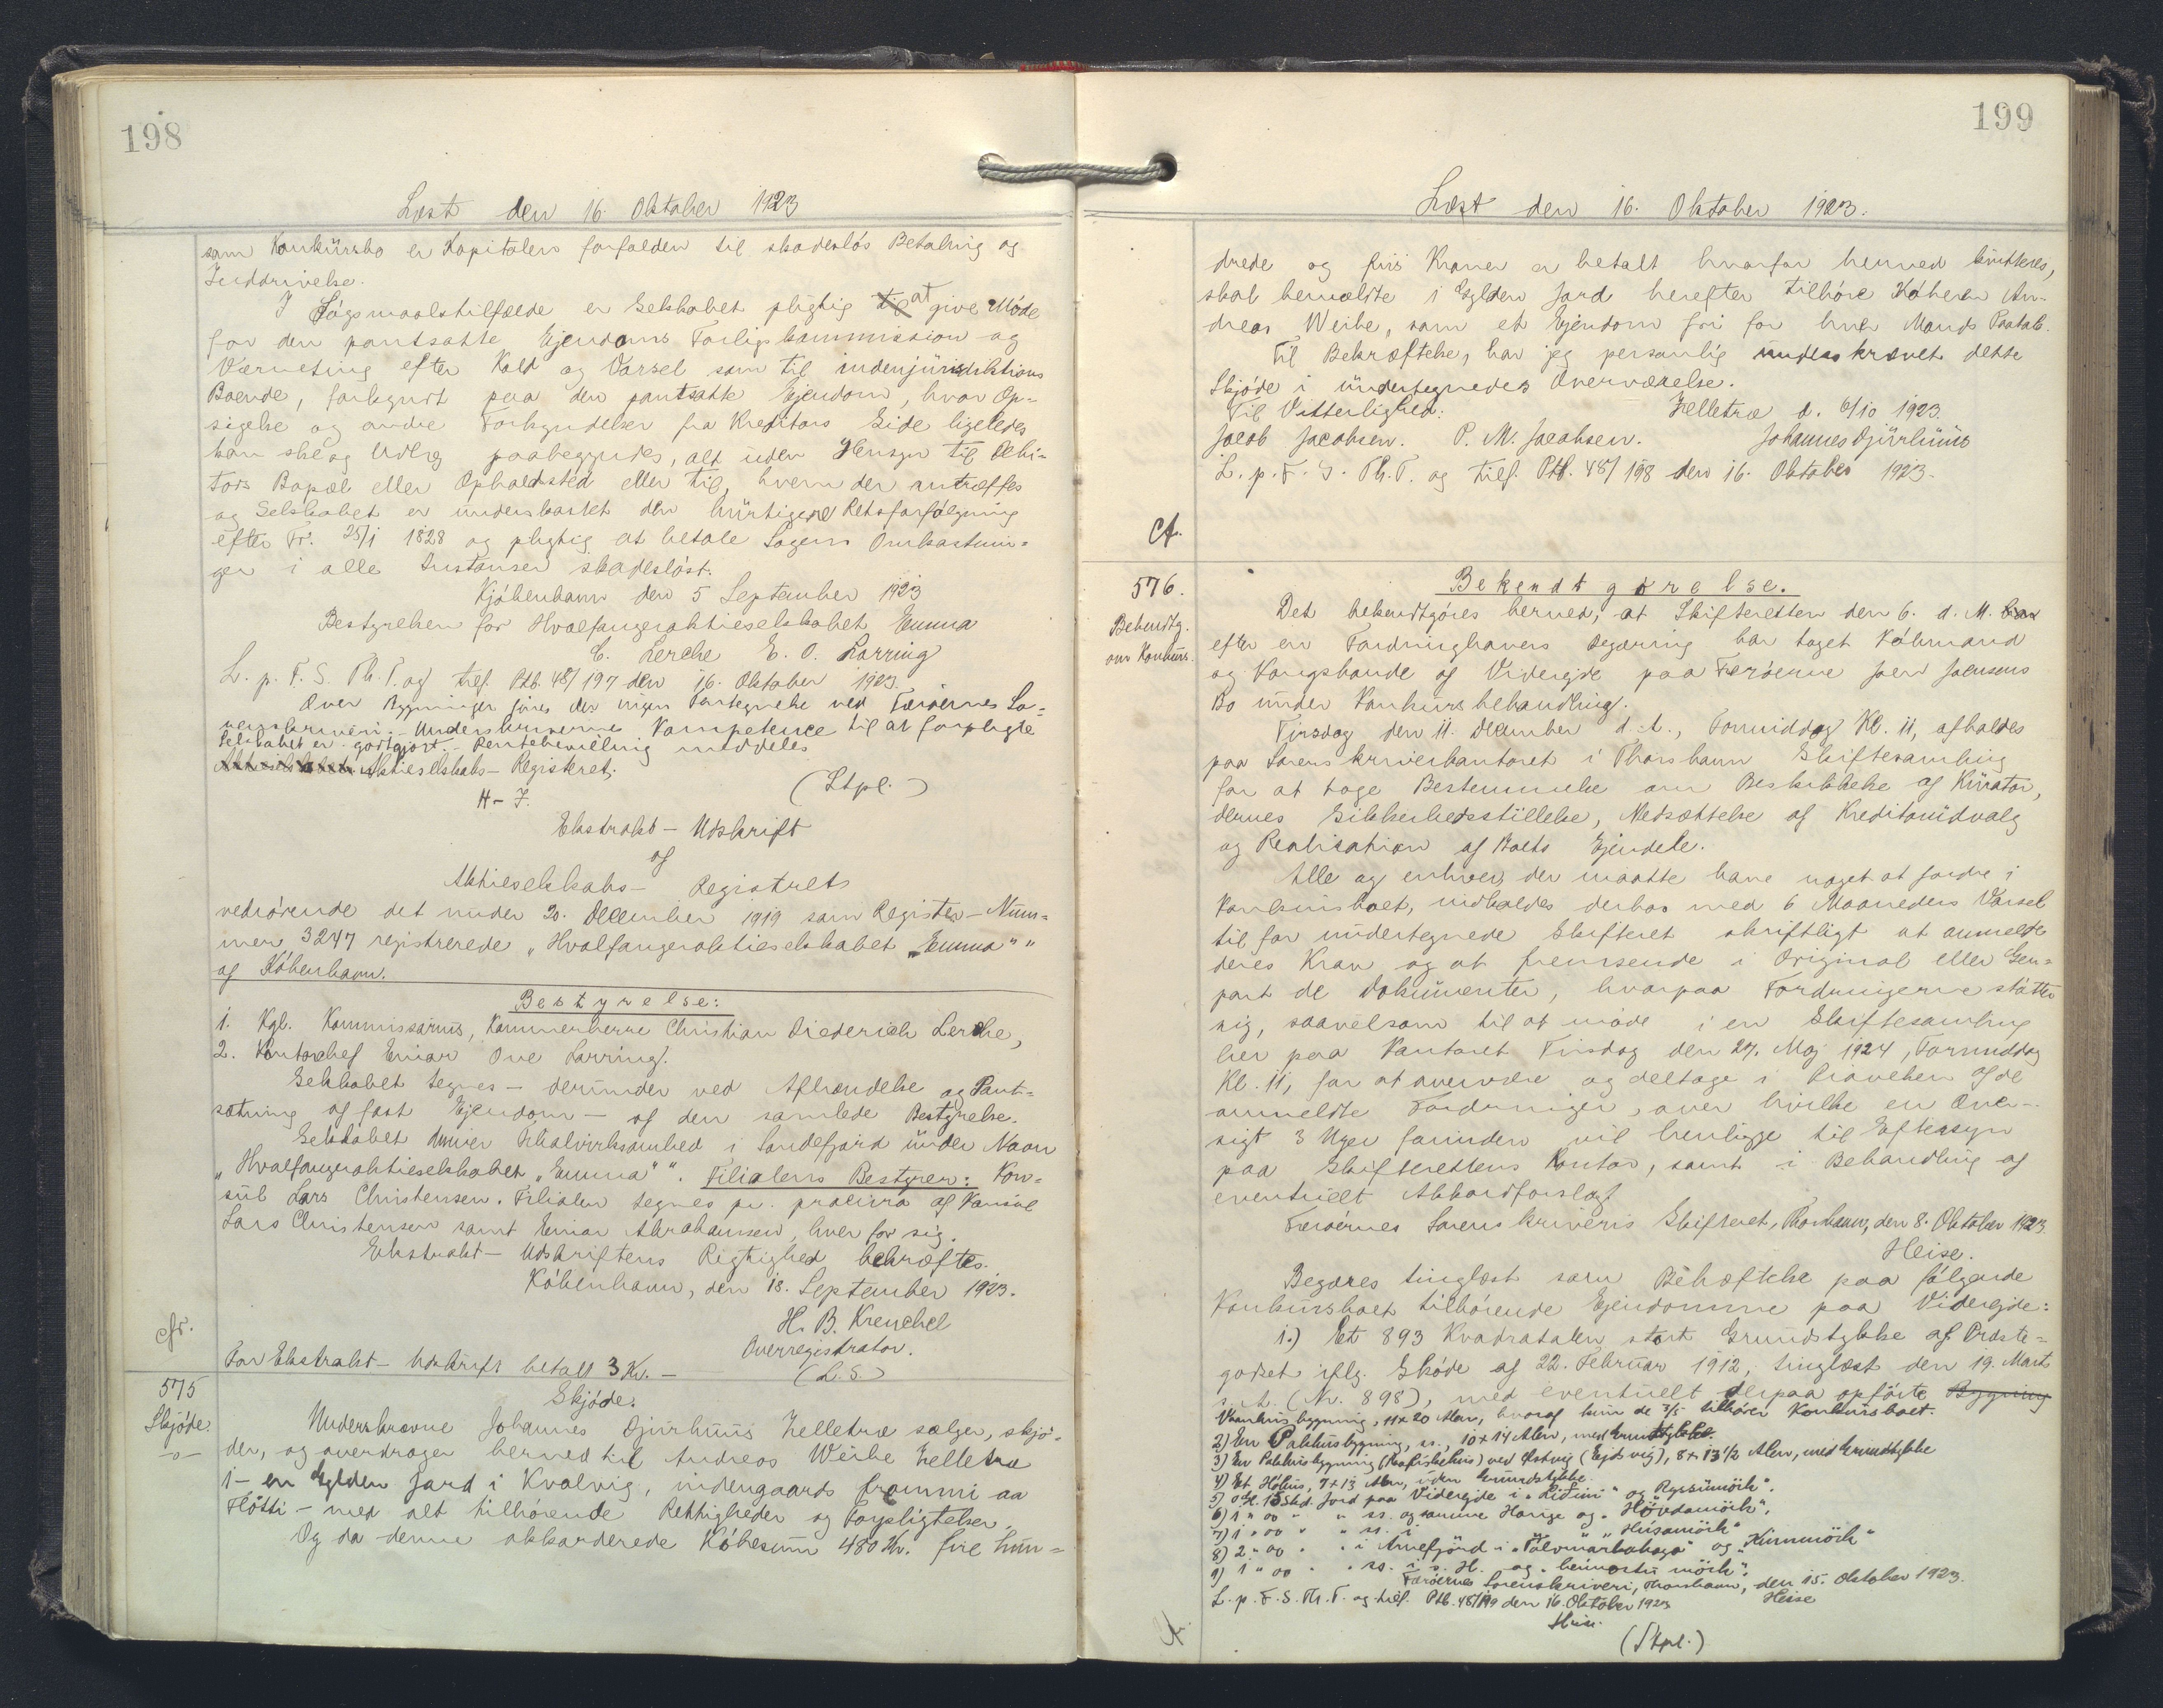 198
Læst den 16. Oktober 1923
som Konkursbo er Kapitalen forfalden til skadesløs Betaling og
Inddrivelse.
I Søgsmaalstilfælde er Selskabet pligtig til at give Møde
for den pantsatte Ejendoms Forligskommission og
Værneting efter Kald og Varsel som til indenjurisdiktions
Boende, forkyndt paa den pantsatte Ejendom, hvor Op=
sigelse og andre Forkyndelser fra Kreditors Side ligeledes
kan ske og Udlæg paabegyndes, alt uden Hensyn til Debi=
tors Bopæl eller Opholdssted eller til, hvem der antræffes
og Selskabet er underkastet den hurtigere Retsforfølgning
efter Fr. 25/1 1828 og pligtig at betale Sagens Omkostnin=
ger i alle Instanser skadesløst.
Kjøbenhavn den 5 September 1923
Bestyrelsen for Hvalfangeraktieselskabet Emma
C. Lerche E. O. Lorring
L. p. F. S. Th. T. og tilf. Ptb. 48/197 den 16. Oktober 1923.
Over Bygninger føres der ingen Fortegnelse ved Færøernes So=
renskriveri. - Underskrivernes Kompetence til at forpligte
Selskabet er godtgjort. - Rentebevilling meddeles
Aktieselskabs- Registret.
H - F. (Stpl.)
Ekstrakt - Udskrift
af
Aktieselskabs- Registret
vedrørende det under 20. December 1919 som Register - Num=
mer 3247 registrerede "Hvalfangeraktieselskabet "Emma" "
af København.
Bestyrelse:
1. Kgl. Kommissarius, Kammerherre Christian Diederich Lerche,
2. Kontorchef Einar Ove Lorring.
Selskabet tegnes - derunder ved Afhændelse og Pant=
sætning af fast Ejendom - af den samlede Bestyrelse.
Selskabet driver Filialvirksomhed i Sandefjord under Navn
"Hvalfangeraktieselskabet "Emma" ". Filialens Bestyrer: Kon=
sul Lars Christensen. Filialen tegnes pr. procura af Konsul
Lars Christensen samt Einar Abrahamsen, hver for sig.
Ekstrakt - Udskriftens Rigtighed bekræftes.
København, den 18. September 1923.
H. B. Krenchel
cfr. Overregistrator.
For Ekstrakt - Udskrift betalt 3 Kr. - (L. S.)
575
Skjøde.
Skjøde.
-o-
Underskrevne Johannes Djurhuus Kelletræ sælger, skjø=
der, og overdrager herved til Andreas Weihe Kelletræ
1 - en Gylden Jord i Kvalvig, indengaards frammi aa
Fløtti - med alt tilhørende Rettigheder og Forpligtelser.
Og da denne akkorderede Købesum 480 Kr. fire hun=
199
Læst den 16. Oktober 1923.
drede og firs Kroner er betalt hvorfor herved kvitteres,
skal bemeldte 1 Gylden Jord herefter tilhøre Køberen An=
dreas Weihe, som et Ejendom fri for hver Mands Paatale.
Til Bekræftelse, har jeg personlig underskrevet dette
Skjøde i undertegnedes Overværelse.
Til Vitterlighed: Kelletræ d. 6/10 1923.
Jacob Jacobsen. P. M. Jacobsen. Johannes Djurhuus
L. p. F. S. Th. T. og tilf. Ptb. 48/198 den 16. Oktober 1923.
cf.
576.
Bekendtg.
om Konkurs.
Bekendtgørelse.
Det bekendtgøres herved, at Skifteretten den 6. d. M. har
efter en Fordringhavers Begæring har taget Købmand
og Kongsbonde af Viderejde paa Færøerne Joen Joensens
Bo under Konkursbehandling.
Tirsdag den 11. December d. A., Formiddag Kl. 11, afholdes
paa Sorenskriverkontoret i Thorshavn Skiftesamling
for at tage Bestemmelse om Beskikkelse af Kurator,
dennes Sikkerhedsstillelse, Nedsættelse af Kreditorudvalg
og Realisation af Boets Ejendele.
Alle og enhver, der maatte have noget at fordre i
Konkursboet, indkaldes derhos med 6 Maaneders Varsel
til for undertegnede Skifteret skriftligt at anmelde
deres Krav og at fremsende i Original eller Gen=
part de Dokumenter, hvorpaa Fordringerne støtte
sig, saavelsom til at møde i en Skiftesamling
her paa Kontoret Tirsdag den 27. Maj 1924, Formiddag
Kl. 11, for at overvære og deltage i Prøvelsen af de
anmeldte Fordringer, over hvilke en Over-
sigt 3 Uger forinden vil henligge til Eftersyn
paa Skifterettens Kontor, samt i Behandling af
eventuelt Akkordforslag.
Færøernes Sorenskriveris Skifteret, Thorshavn, den 8. Oktober 1923.
Heise.
Begæres tinglæst som Behæftelse paa følgende
Konkursboet tilhørende Ejendomme paa Viderejde:
1.) Et 893 Kvadratalen stort Grundstykke af Præste=
godset iflg. Skøde af 22. Februar 1912, tinglæst den 19. Marts
s. A. (Nr. 898), med eventuelt derpaa opførte Bygning
Vaanhusbygning, 11x20 Alen, hvoraf kun de 3/5 tilhører Konkursboet.
2) En Pakhusbygning, ss., 10x14 Alen, med Grundstykke.
3) En Pakhusbygning (Klipfiskehus) ved Østvig (Ejdsvig), 8x13 1/2 Alen, med Grundstykke
4) Et Høhus, 9x13 Alen, uden Grundstykke.
5) 0 M. 15 Skd. Jord paa Viderejde i "Lidini" og "Ryssumørk".
6) 1 " 00 " " ss. og samme Hauge og "Høvdamørk".
7) 1 " 00 " " ss. i " " "Húsamørk"
8) 2 " 00 " " i Arnefjord i "Tólvmarkahaga" og "Kinnmörk"
9) 1 " 00 " " ss. i s. H. og "heimastu mörk".
Færøernes Sorenskriveri, Thorshavn, den 15. Oktober 1923.
Heise
L. p. F. S. Th. T. og tilf. Ptb. 48/199 den 16. Oktober 1923
Heise.
(Stpl.)
cf.